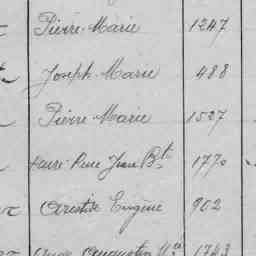 Pierre-Marie 1247
Joseph-Marie 488
Pierre-Marie 1527
René Jean Bte 1770
Aristide Eugène 902
Augustin Mie 1743